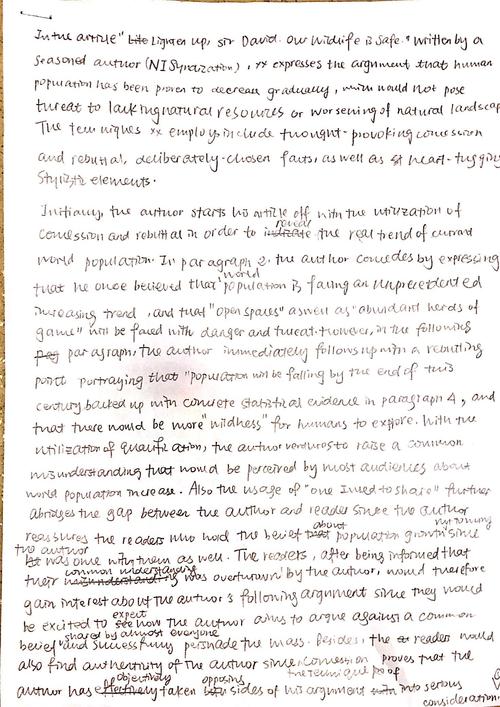 In the article "Lighten up, sir David. Our Wildlife is Safe." written by a
seasoned author (NI Syndization), xx expresses the argument that human
population has been proven to decrease gradually, which would not pose
threat to lacking natural resources or worsening of natural landscap
The techniques xx employs include thought-provoking concession
and rebuttal, deliberately-chosen facts, as well as heart-tugging
stylistic elements.
Initially, the author starts his article off with the utilization of
concession and rebuttal in order to reveal the real trend of current
world population. In paragraph 2, the author concedes by expressing
that he once believed that world population is facing an unprecedented
increasing trend, and that "open spaces" as well as "abundant herds of
game" will be faced with danger and threat. However, in the following
paragraph, the author immediately follows up with a rebutting
point portraying that "population will be falling by the end of this
century backed up with concrete statistical evidence in paragraph 4, and
that there would be more "wildness" for humans to explore. With the
utilization of qualification, the author ventures to raise a common
misunderstanding that would be perceived by most audiences about
world population increase. Also the usage of "one I used to share" further
abridges the gap between the author and reader since the author
reassures the readers who hold the belief about population growth since
the author was one with them as well. The readers, after being informed that
their common understanding was overturned by the author, would therefore
gain interest about the author's following argument since they would
be excited to expect how the author aims to argue against a common
belief shared by almost everyone and successfully persuade the mass. Besides, the reader would
also find authenticity of the author since the technique of concession proves that the
author has objectively taken opposing sides of his argument into serious
consideration.